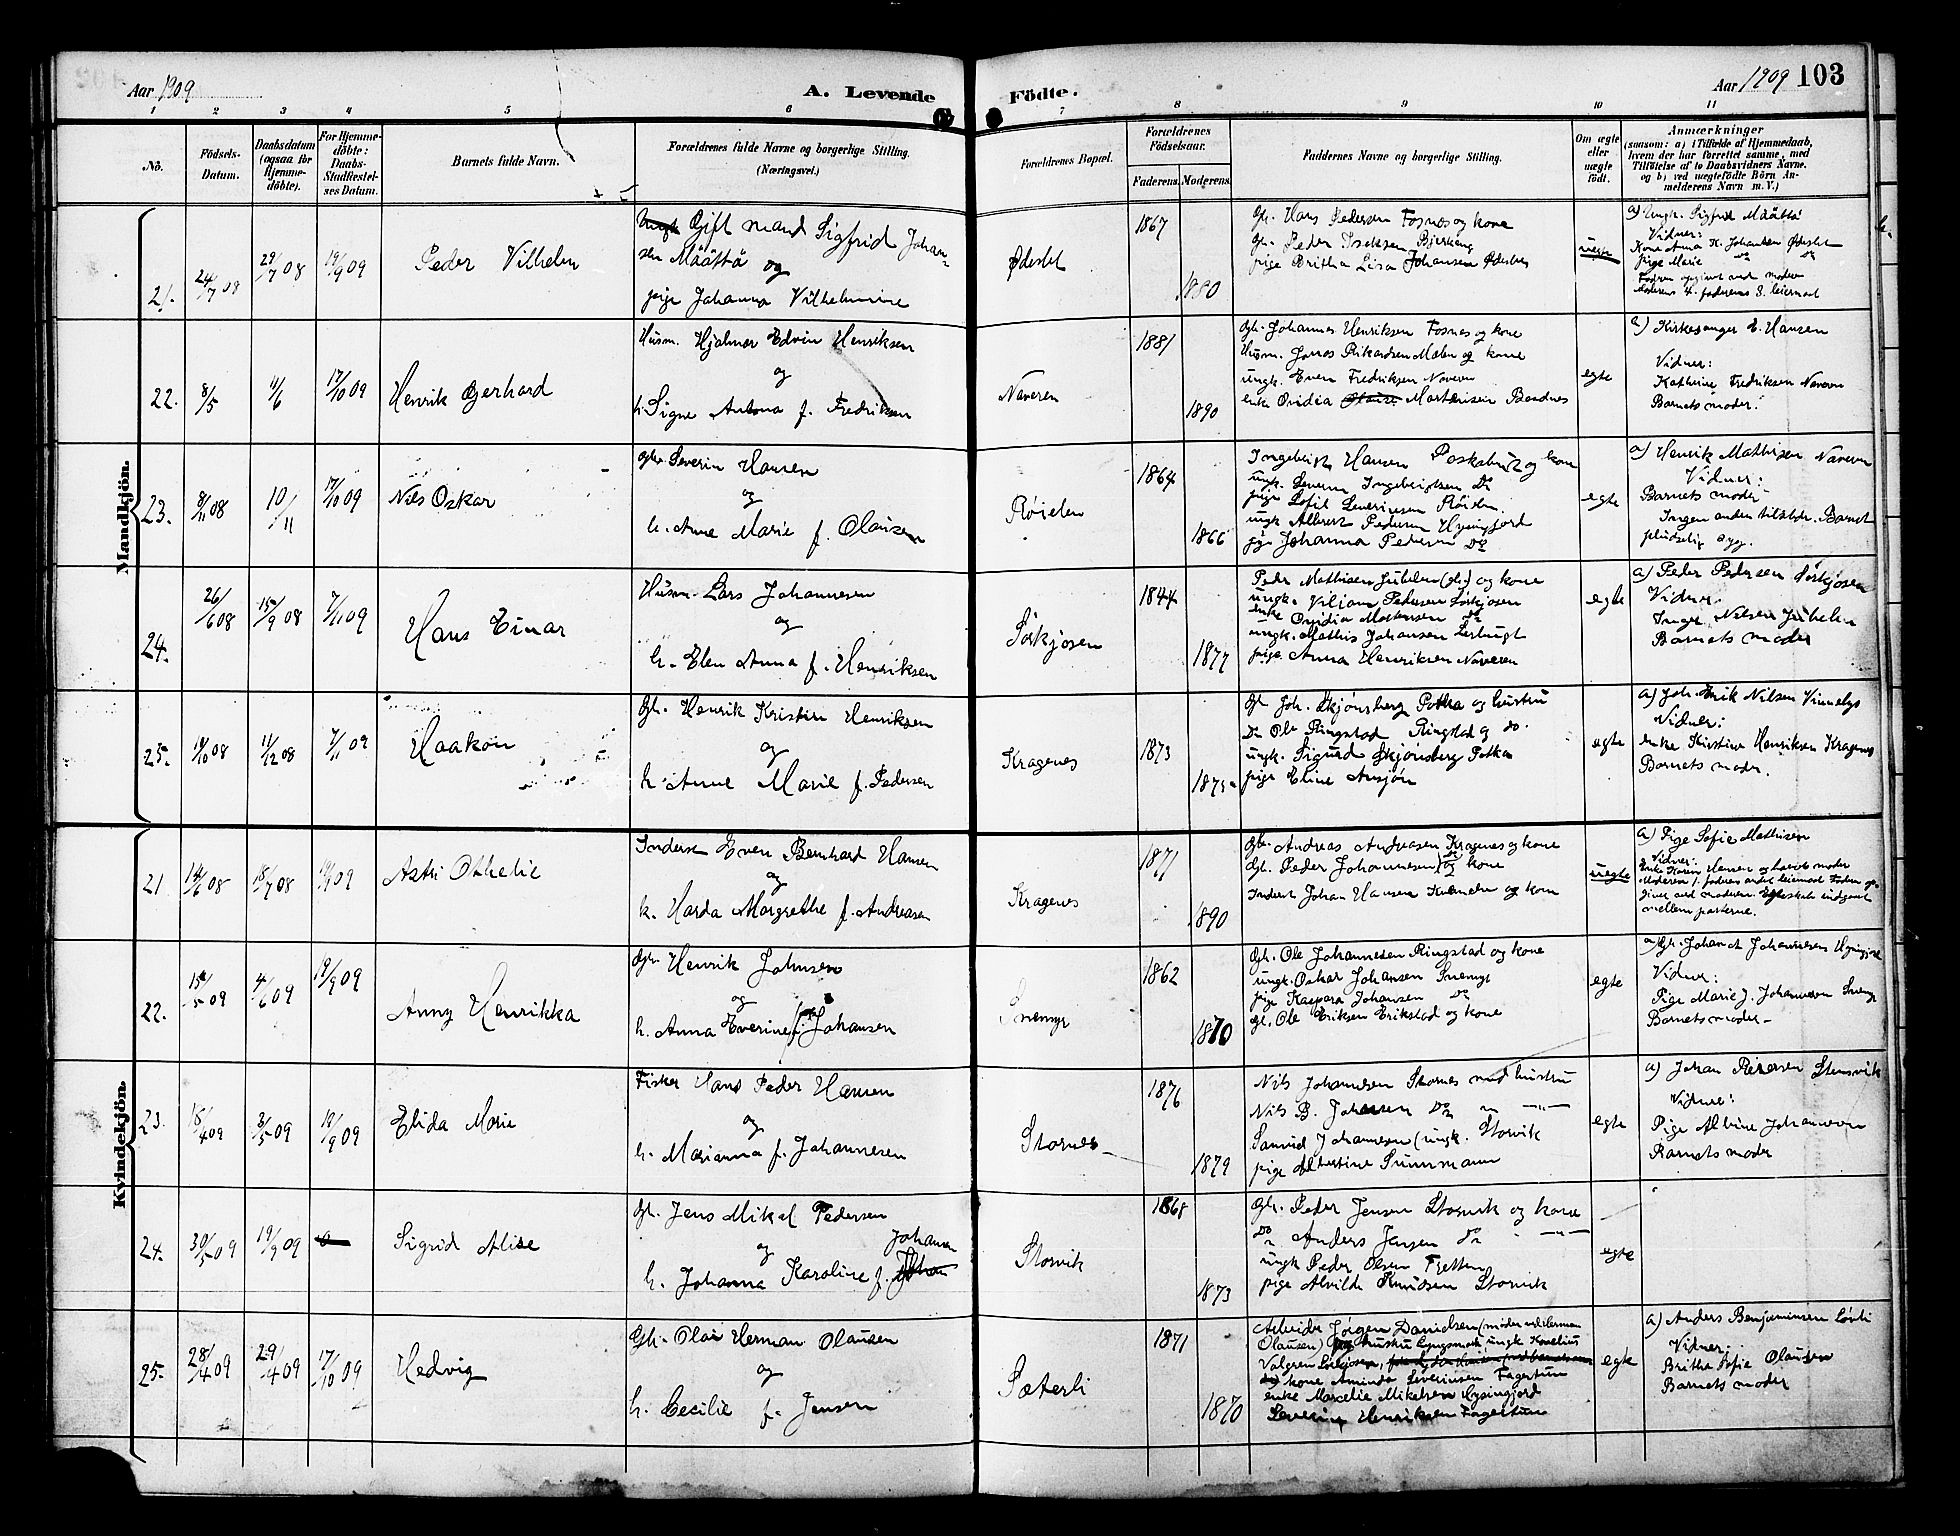 Aar 1909
A. Levende Födte.
Aar 1909 103
1 2 3 4 5 6 7 8 9 10 11
No.
Födsels-Datum.
Daabsdatum (ogsaa for Hjemme-döbte).
For Hjemme-döbte: Daabs-Stadfæstel-ses Datum.
Barnets fulde Navn.
Forældrenes fulde Navne og borgerlige Stilling. (Næringsvei.)
Forældrenes Bopæl.
Forældrenes Födselsaar.
Faderens. Moderens.
Faddernes Navne og borgerlige Stilling.
Om ægte eller uægte födt.
Anmærkninger
(saasom: a) i Tilfælde af Hjemmedaab,
hvem der har forrettet samme, med
Tilföielse af to Daabsvidners Navne.
og b) ved uægtefödte Börn An-
melderens Navn m. V.)
Mandkjön.
21. 24/7 08 29/7 08 19/9 09 Peder Vilhelm
Gift mand Sigfrid Johan-
sen Määttä og
pige Johanna Vilhelmine
Ødeslet 1867 1880
Gh. Hans Pedersen Fosnes og kone
Gh. Peder Isaksen Bjerkeng
pige Britha Lisa Johansen Ødeslet
uegte
a) Ungk. Sigfrid Määttä
Vidner:
Kone Anna K. Johansen Ødeslet
pige Marie Do
Faderen opgivet ved moderen
Moderens 4. faderens 8. leiermaal
22. 8/5 11/6 17/10 09 Henrik Gerhard
Husm. Hjalmar Edvin Henriksen
og
h. Signe Antona f. Fredriksen
Naveren 1881 1890
Gh. Johannes Henriksen Fosnes og kone
Husm. Jonas Rikardsen Molen og kone
ungk. Even Fredriksen Naveren
enke Ovidia Mortensen
egte
a) Kirkesanger E. Hansen
Vidner:
Kathrine Fredriksen Naveren
Barnets moder.
23. 8/11 08 10/11 17/10 09 Nils Oskar
Gbr. Severin Hansen
og
h. Anne Marie f. Olausen
Röielen 1864 1866
Ingebrigt Hansen og kone
ungk. Severin Ingebrigtsen Do
pige Sofie Severinsen Röielen.
ungk Albert Pedersen Hysingjord
pige Johanna Pedersen Do
egte
a) Henrik Mathisen Naveren
Vidner:
Barnets moder
Ingen anden tilstede. Barnet
pludselig syg.
24. 26/6 08 15/9 08 7/11 09 Hans Einar
Husm. Lars Johannesen
og
h. Elen Anna f. Henriksen
Sörkjosen 1844 1877
Peder Mathisen Jubelen (gh.) og kone
ungk. Viliam Pedersen Sörkjosen
enke Ovidia Mortensen Do
ungk. Mathis Johansen
pige Anna Henriksen Naveren
egte
a) Peder Pedersen Sörkjosen
Vidner.
Inger Nilsen Jubelen
Barnets moder
25. 19/10 08 11/12 08 7/11 09 Haakon
Gh. Henrik Kristian Henriksen
og
h. Anne Marie f. Pedersen
Kragenes 1873 1875
Gh Joh. Skjönsberg Potka og hustru
Do Ole Ringstad Ringstad og do.
ungk. Sigurd Skjönsberg Potka
pige Eline Ansjön
egte
a) Joh. Erik Nilsen Vinnelys
Vidner:
enke Kirstine Henriksen Kragenes
Barnets moder.
Kvindekjön.
21. 12/6 08 18/7 08 19/9 09 Astri Othelie
Inderst Even Bernhard Hansen
og
k. Harda Margrethe f. Andreasen
Kragenes 1871 1890
Gbr. Andreas Andreasen Kragenes og kone
Gh. Peder Johannesen Do og kone
Inderst Johan Hansen og kone
uegte
a) Pige Sofie Mathisen
Vidner:
Enke Karen Hansen og barnets moder
Moderens 1. faderens andet leiermaal Faderen op-
givet ved moderen. Egteskab indgaaet
mellem parterne.
22. 15/5 09 4/6 09 19/9 09 Anny Henrikka
Gbr. Henrik Johnsen
og
h. Anna Everine f. Johansen
Snemyr 1862 1870
Gh. Ole Johannesen Ringstad og kone
ungk. Oskar Johansen Snemyr
pige Kaspara Johansen Do
gh. Ole Eriksen Erikstad og kone
egte
a) Gh. Johan A Johannesen
Vidner:
Pige Marie J. Johannesen Snemyr
Barnets moder
23. 18/4 09 3/5 09 19/9 09 Elida Marie
Fisker Hans Peder Hansen
og
h. Marianna f. Johannesen
Stornes 1876 1879
Nils Johannesen Stornes med hustru
Nils B. Johansen Do " —"—
Samuel Johannesen (ungk. Storvik
pige Albertine Summann
egte
a) Johan Petersen Stensvik
Vidner:
Pige Alvine Johannesen
Barnets moder
24. 30/5 09 19/9 09 Sigrid Alise
Gh. Jens Mikal Pedersen
og
h. Johanna Karoline f. Johansen
Storvik 1868 1873
Gh. Peder Jensen Storvik og kone
Do Anders Jensen Do " —"—
ungk Peder Olsen Fjetten
pige Alvilde Knudsen Storvik
egte
25. 28/4 09 29/4 09 17/10 09 Hedvig
Gh. Olai Herman Olausen
og
h. Cecilie f. Jensen
Sæterli 1871 1870
Arbeider Jörgen Danielsen
Olausen) og hustru Lyngsmark, ungk Kornelius
kone Aminda Severinsen Fagertun
enke Marcelie Mikelsen Hysingjord
Severin Henriksen Fagertun
egte
a) Anders Benjaminsen
Vidner:
Britha Sofie Olausen
Barnets moder